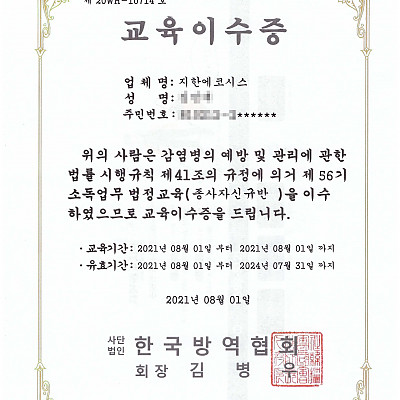 제 20WH-10714 호
교육이수증
업 체 명: 지한에코시스
성 명:
주민번호: ******
위의 사람은 감염병의 예방 및 관리에 관한
법률 시행규칙 제41조의 규정에 의거 제 56기
소독업무 법정교육(종사자신규반 )을 이수
하였으므로 교육이수증을 드립니다.
· 교육기간: 2021년 08월 01일 부터 2021년 08월 01일 까지
· 유효기간: 2021년 08월 01일 부터 2024년 07월 31일 까지
2021년 08월 01일
사단법인 한국방역협회
회장 김 병 우